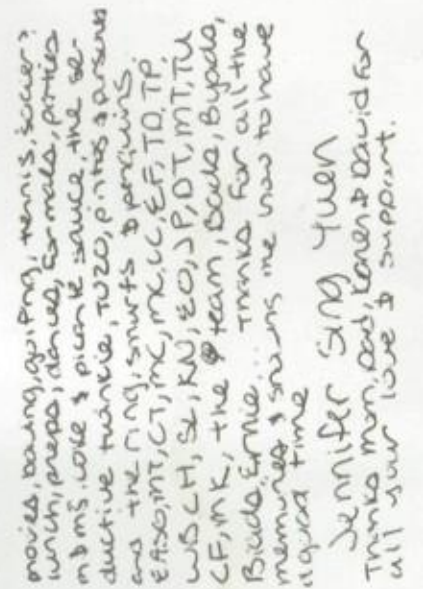 movies, bowling, golfing, tennis, soccer?
lunch, preps, dances, formals, parties
m&ms, coke & picante sauce, the se-
ductive twinkie, TUZO, pirates & parsons
and the ring, smurfs & penguins.
EA, SO, MT, CT, MC, MK, LC, EF, TD, TP,
WB, CH, SL, KN, EO, JP, DT, MT, TU
CF, MK, the team,
Ernie... Thanks for all the
memories & showing me how to have
a good time
Jennifer Sing Yuen
Thanks mom, Dad, Karen & David for
all your love & support.